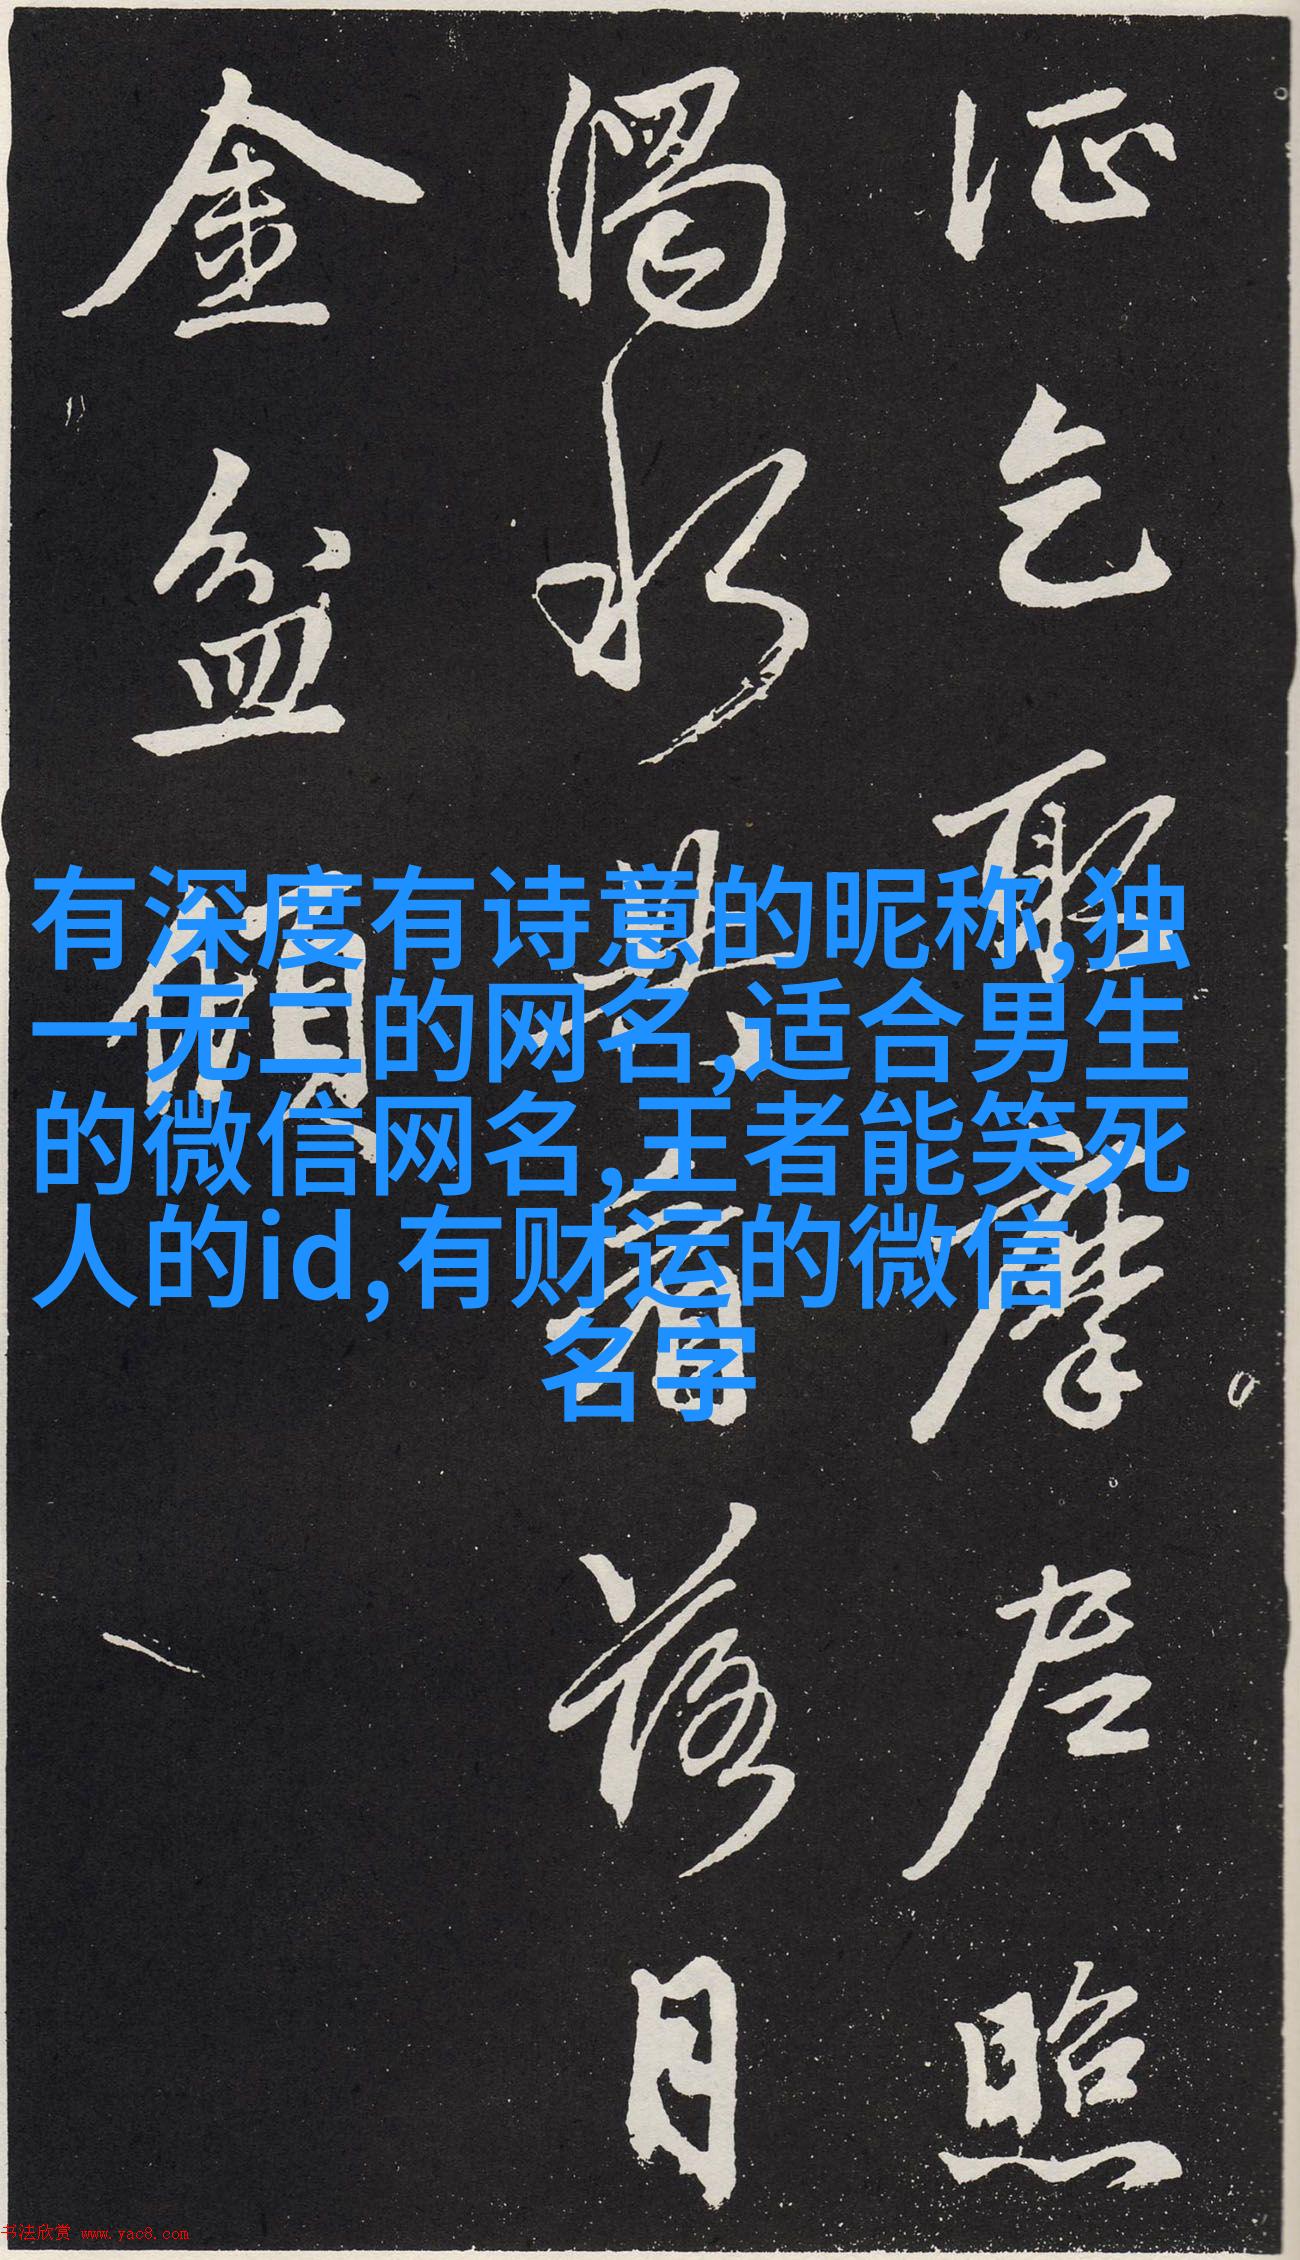 摩尼照
濁水共看落月
金盆傾
有深度有诗意的昵称,独
一无二的网名,适合男生
的微信网名,王者能笑死
人的id,有财运的微信
名字
书法欣赏 www.yac8.com